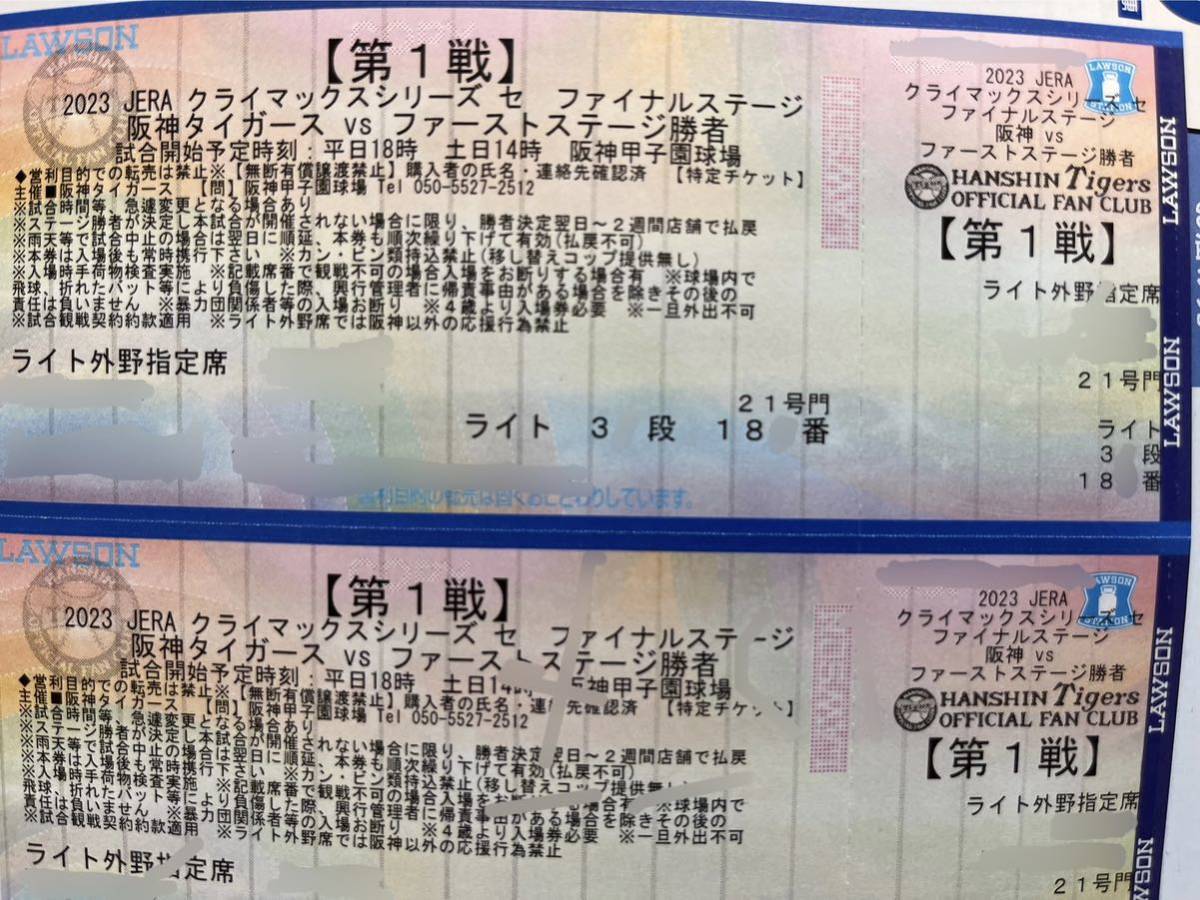 LAWSON
【第１戦】
2023 JERA クライマックスシリーズ セ　ファイナルステージ
阪神タイガース vs ファーストステージ勝者
試合開始予定時刻：平日18時　土日14時　阪神甲子園球場
◆営利目的での転売は禁止※【無断有償譲渡禁止】購入者の氏名・連絡先確認済　【特定チケット】
主催■阪神タイガース　【問】阪神甲子園球場 Tel 050-5527-2512
※試合時間等、急遽変更となる場合あり
※ステージ勝者が決定し本試合が開催されない場合に限り、勝者決定翌日～２週間店舗で払戻
※雨天等で試合中止の場合は翌日に順延、本券も順次繰り下げて有効(払戻不可)
※本券は入場後も常時携行下さい　※カン・ビン類持込禁止(移し替えコップ提供無し)
※入場時手荷物検査実施　※記載席番で観戦不可の場合入場をお断りする場合有　※球場内で
飛球、折れたバット等により負傷した際、興行管理者に帰責事由がある場合を除きその後の
責任は負いません　※暴力団関係者等の入場お断り　※４歳より入場券必要　※一旦外出不可
※試合観戦契約約款適用　※ライト外野席では阪神以外の応援行為禁止
ライト外野指定席
２１号門
ライト　３　段　１８　番
2023 JERA
クライマックスシリーズ セ
ファイナルステージ
阪神 vs
ファーストステージ勝者
HANSHIN Tigers
OFFICIAL FAN CLUB
【第１戦】
ライト外野指定席
２１号門
ライト
３　段
18　番
LAWSON
LAWSON
LAWSON
【第１戦】
2023 JERA クライマックスシリーズ セ　ファイナルステージ
阪神タイガース vs ファーストステージ勝者
試合開始予定時刻：平日18時　土日14時　阪神甲子園球場
◆営利目的での転売は禁止※【無断有償譲渡禁止】購入者の氏名・連絡先確認済　【特定チケット】
主催■阪神タイガース　【問】阪神甲子園球場 Tel 050-5527-2512
※試合時間等、急遽変更となる場合あり
※ステージ勝者が決定し本試合が開催されない場合に限り、勝者決定翌日～２週間店舗で払戻
※雨天等で試合中止の場合は翌日に順延、本券も順次繰り下げて有効(払戻不可)
※本券は入場後も常時携行下さい　※カン・ビン類持込禁止(移し替えコップ提供無し)
※入場時手荷物検査実施　※記載席番で観戦不可の場合入場をお断りする場合有　※球場内で
飛球、折れたバット等により負傷した際、興行管理者に帰責事由がある場合を除きその後の
責任は負いません　※暴力団関係者等の入場お断り　※４歳より入場券必要　※一旦外出不可
※試合観戦契約約款適用　※ライト外野席では阪神以外の応援行為禁止
ライト外野指定席
2023 JERA
クライマックスシリーズ セ
ファイナルステージ
阪神 vs
ファーストステージ勝者
HANSHIN Tigers
OFFICIAL FAN CLUB
【第１戦】
ライト外野指定席
２１号門
LAWSON